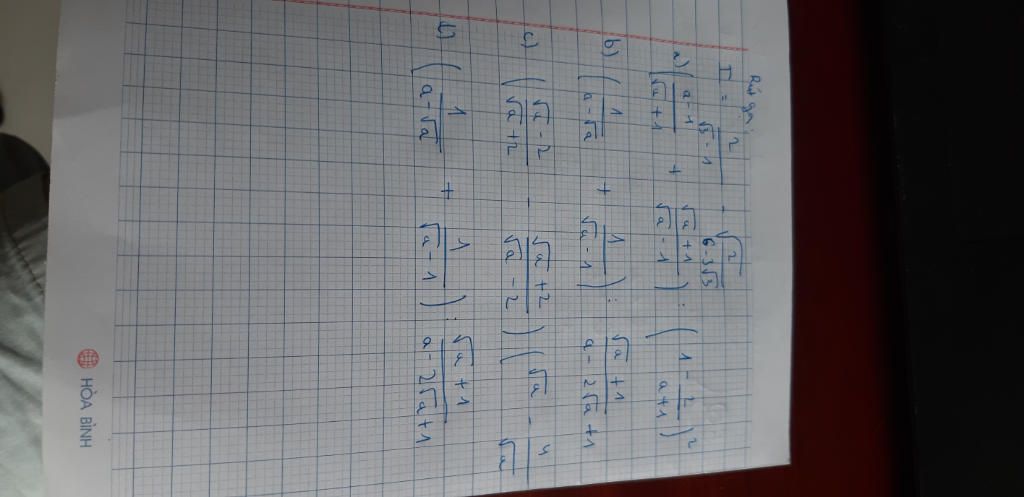 Rút gọn
I = \frac{2}{\sqrt{3} - 1} - \sqrt{\frac{2}{6 - 3\sqrt{3}}}
a) \left( \frac{a - 1}{\sqrt{a} + 1} + \frac{\sqrt{a} + 1}{\sqrt{a} - 1} \right) : \left( 1 - \frac{2}{a + 1} \right)^2
b) \left( \frac{1}{a - \sqrt{a}} + \frac{1}{\sqrt{a} - 1} \right) : \frac{\sqrt{a} + 1}{a - 2\sqrt{a} + 1}
c) \left( \frac{\sqrt{a} - 2}{\sqrt{a} + 2} - \frac{\sqrt{a} + 2}{\sqrt{a} - 2} \right) \left( \sqrt{a} - \frac{4}{\sqrt{a}}
\left( \frac{1}{a - \sqrt{a}} + \frac{1}{\sqrt{a} - 1} \right) : \frac{\sqrt{a} + 1}{a - 2\sqrt{a} + 1}
HÒA BÌNH